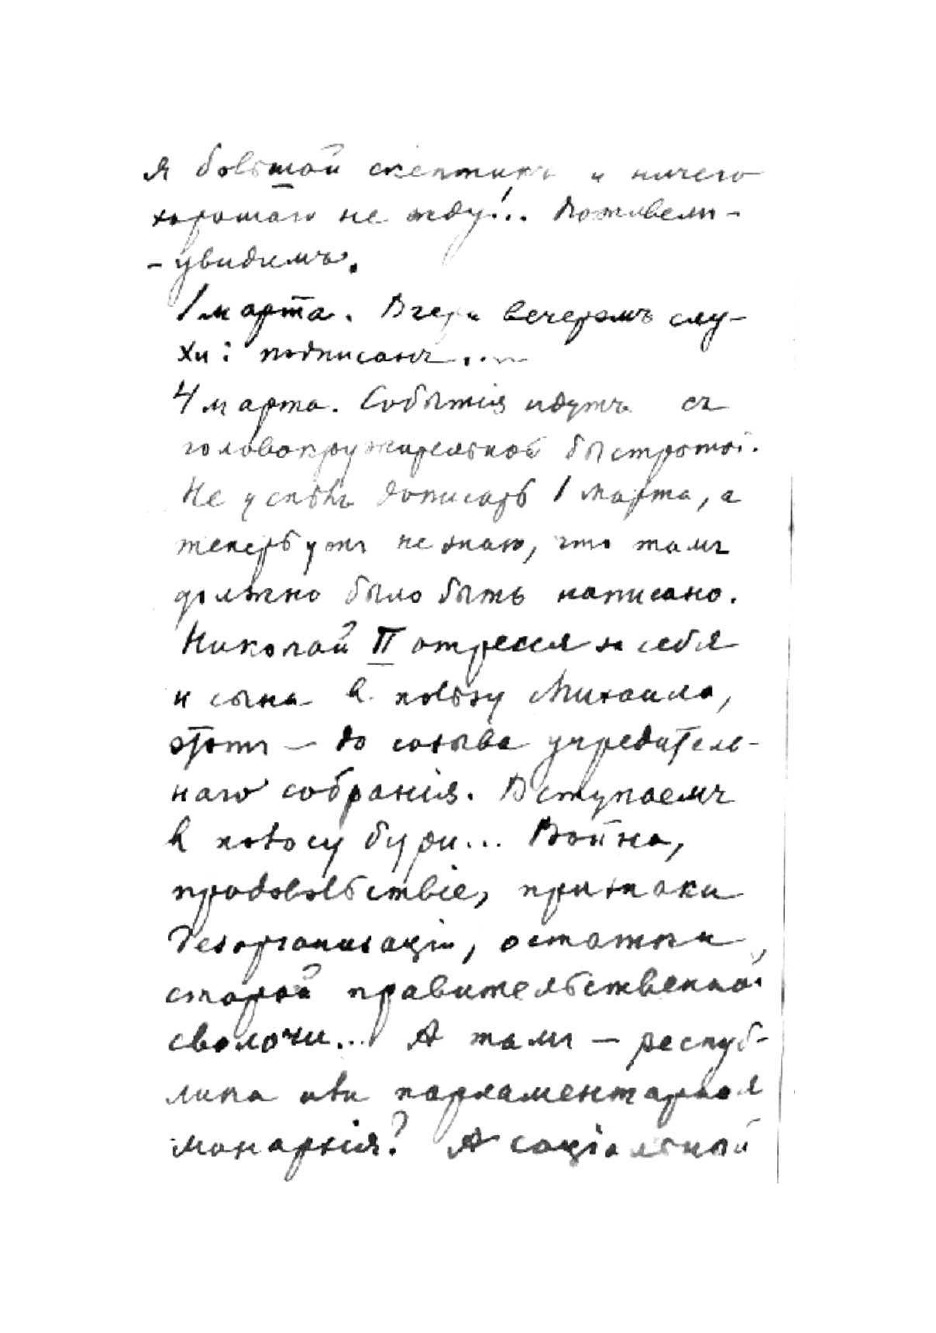 я большой скептикъ и ничего
хорошаго не жду!.. Поживемъ –
– увидимъ.
1 марта. Вчера вечеромъ слу-
хи: подписанъ....
4 марта. Событія идутъ съ
головокружительной быстротой.
Не успѣлъ дописать 1 марта, а
теперь ужъ не знаю, что тамъ
должно было быть написано.
Николай II отрекся за себя
и сына въ пользу Михаила,
этотъ – до созыва учредитель-
наго собранія. Вступаемъ
въ полосу бури... Война,
продовольствіе, признаки
дезорганизаціи, остатки
старой правительственной
сволочи... А тамъ – респуб-
лика или парламентарная
монархія? А соціальный